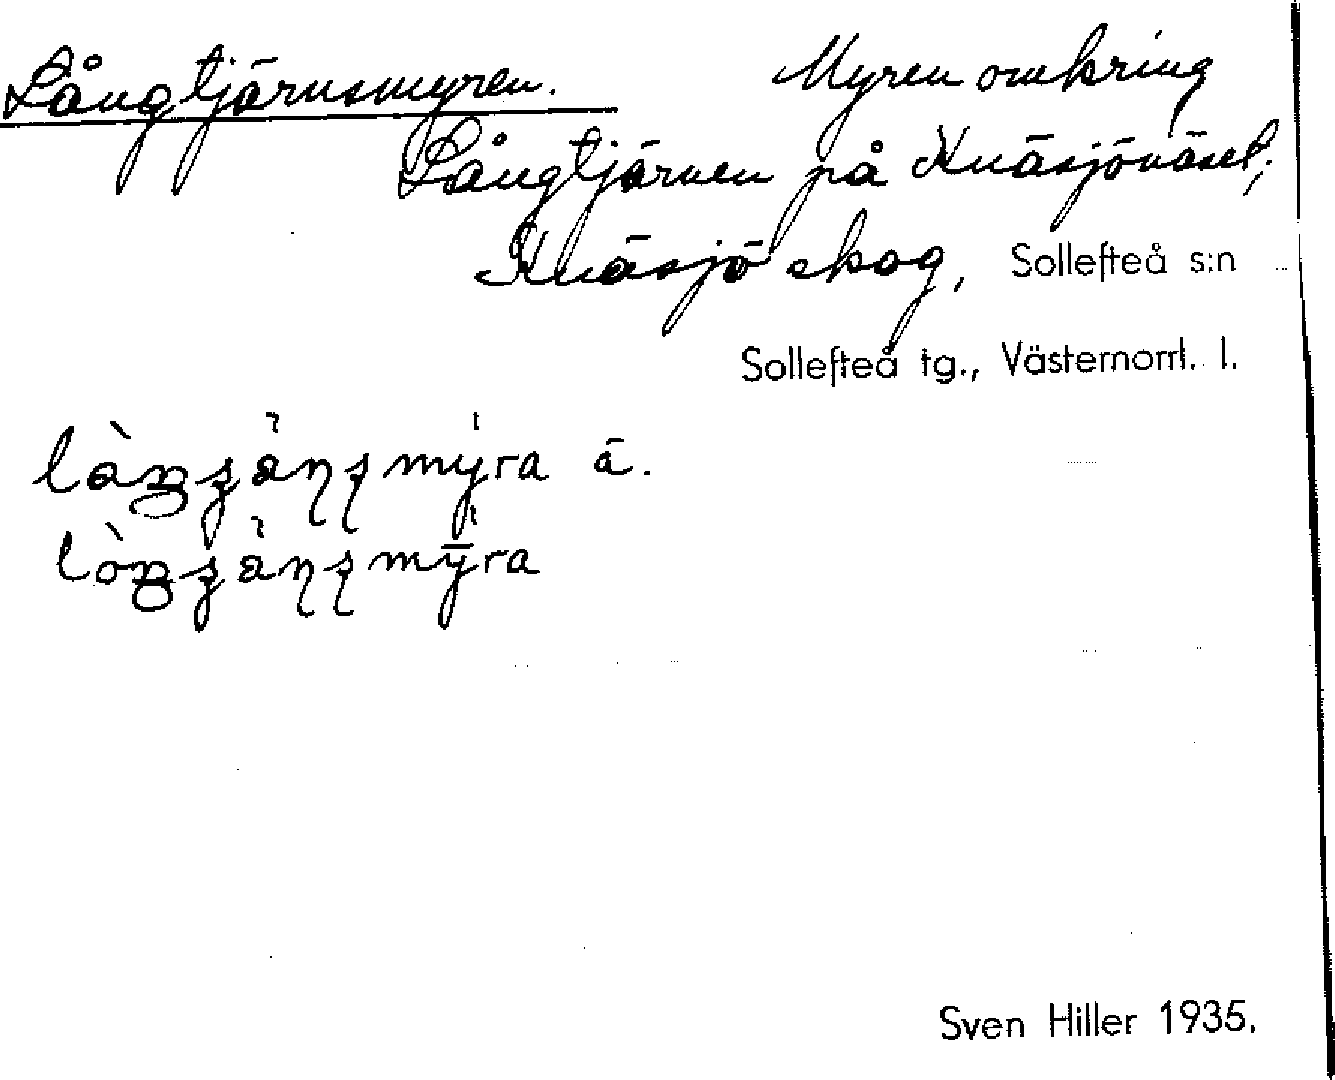 Långtjärnsmyren. Myren omkring
Långtjärnen på Knäsjönäset;
Knäsjö skog, Sollefteå s:n
Sollefteå tg., Västernorrl. l.
ä.
Sven Hiller 1935.